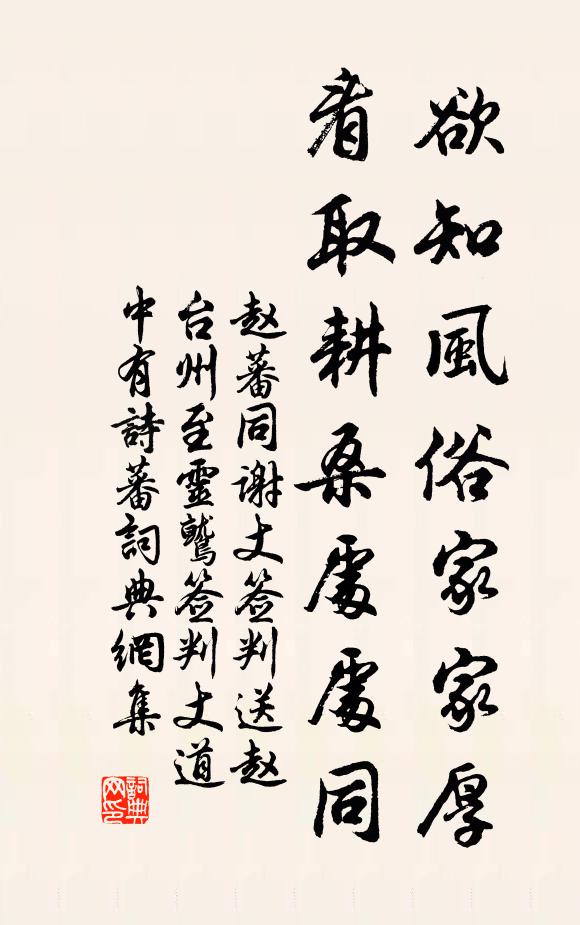 欲知風俗家家厚
看取耕桑處處同
赵蕃同谢丈签判送赵
台州至靈鷲签判丈道
中有詩蕃詞典網集
詞典
网印